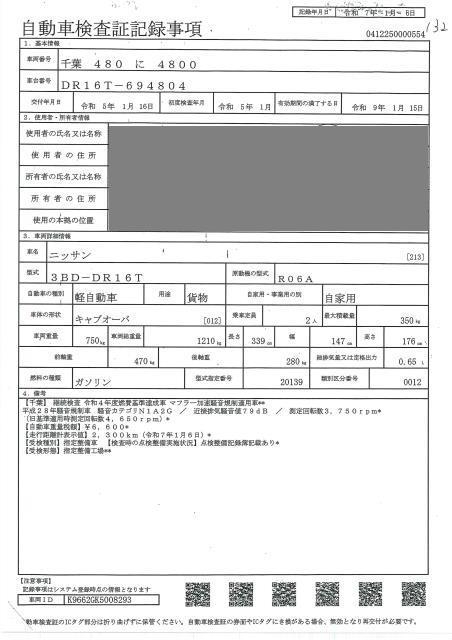 記録年月日 令和 7年 1月 6日
132
自動車検査証記録事項
0412250000554
1．基本情報
車両番号 千葉 480 に 4800
車台番号 DR16T-694804
交付年月日 令和 5年 1月 16日 初度検査年月 令和 5年 1月 有効期間の満了する日 令和 9年 1月 15日
2．使用者・所有者情報
使用者の氏名又は名称
使用者の住所
所有者の氏名又は名称
所有者の住所
使用の本拠の位置
3．車両詳細情報
車名 ニッサン [213]
型式 3BD-DR16T 原動機の型式 R06A
自動車の種別 軽自動車 用途 貨物 自家用・事業用の別 自家用
車体の形状 キャブオーバ [012] 乗車定員 2人 最大積載量 350kg
車両重量 750kg 車両総重量 1210kg 長さ 339cm 幅 147cm 高さ 176cm
前軸重 470kg 後軸重 280kg 総排気量又は定格出力 0.65L
燃料の種類 ガソリン 型式指定番号 20139 類別区分番号 0012
4．備考
【千葉】 継続検査 令和4年度燃費基準達成車 マフラー加速騒音規制適用車**
平成28年騒音規制車 騒音カテゴリN1A2G ／ 近接排気騒音値79dB ／ 測定回転数3，750rpm*
（旧基準適用時測定回転数4，650rpm）*
【自動車重量税額】￥6，600*
【走行距離計表示値】2，300km（令和7年1月6日）*
【受検種別】指定整備車 【検査時の点検整備実施状況】点検整備記録簿記載あり*
【受検形態】指定整備工場**
【注意事項】
記録事項はシステム登録時点の情報となります
車両ID K9662GK5008293
自動車検査証のICタグ部分は折り曲げずに保管ください。自動車検査証の券面やICタグにき損がある場合、無効となり再交付が必要です。